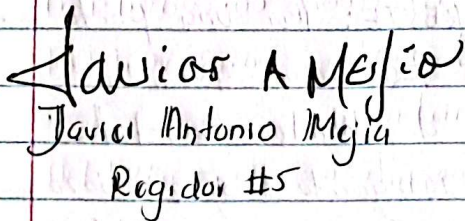 Javier A Mejia
Javier Antonio Mejia
Regidor #5